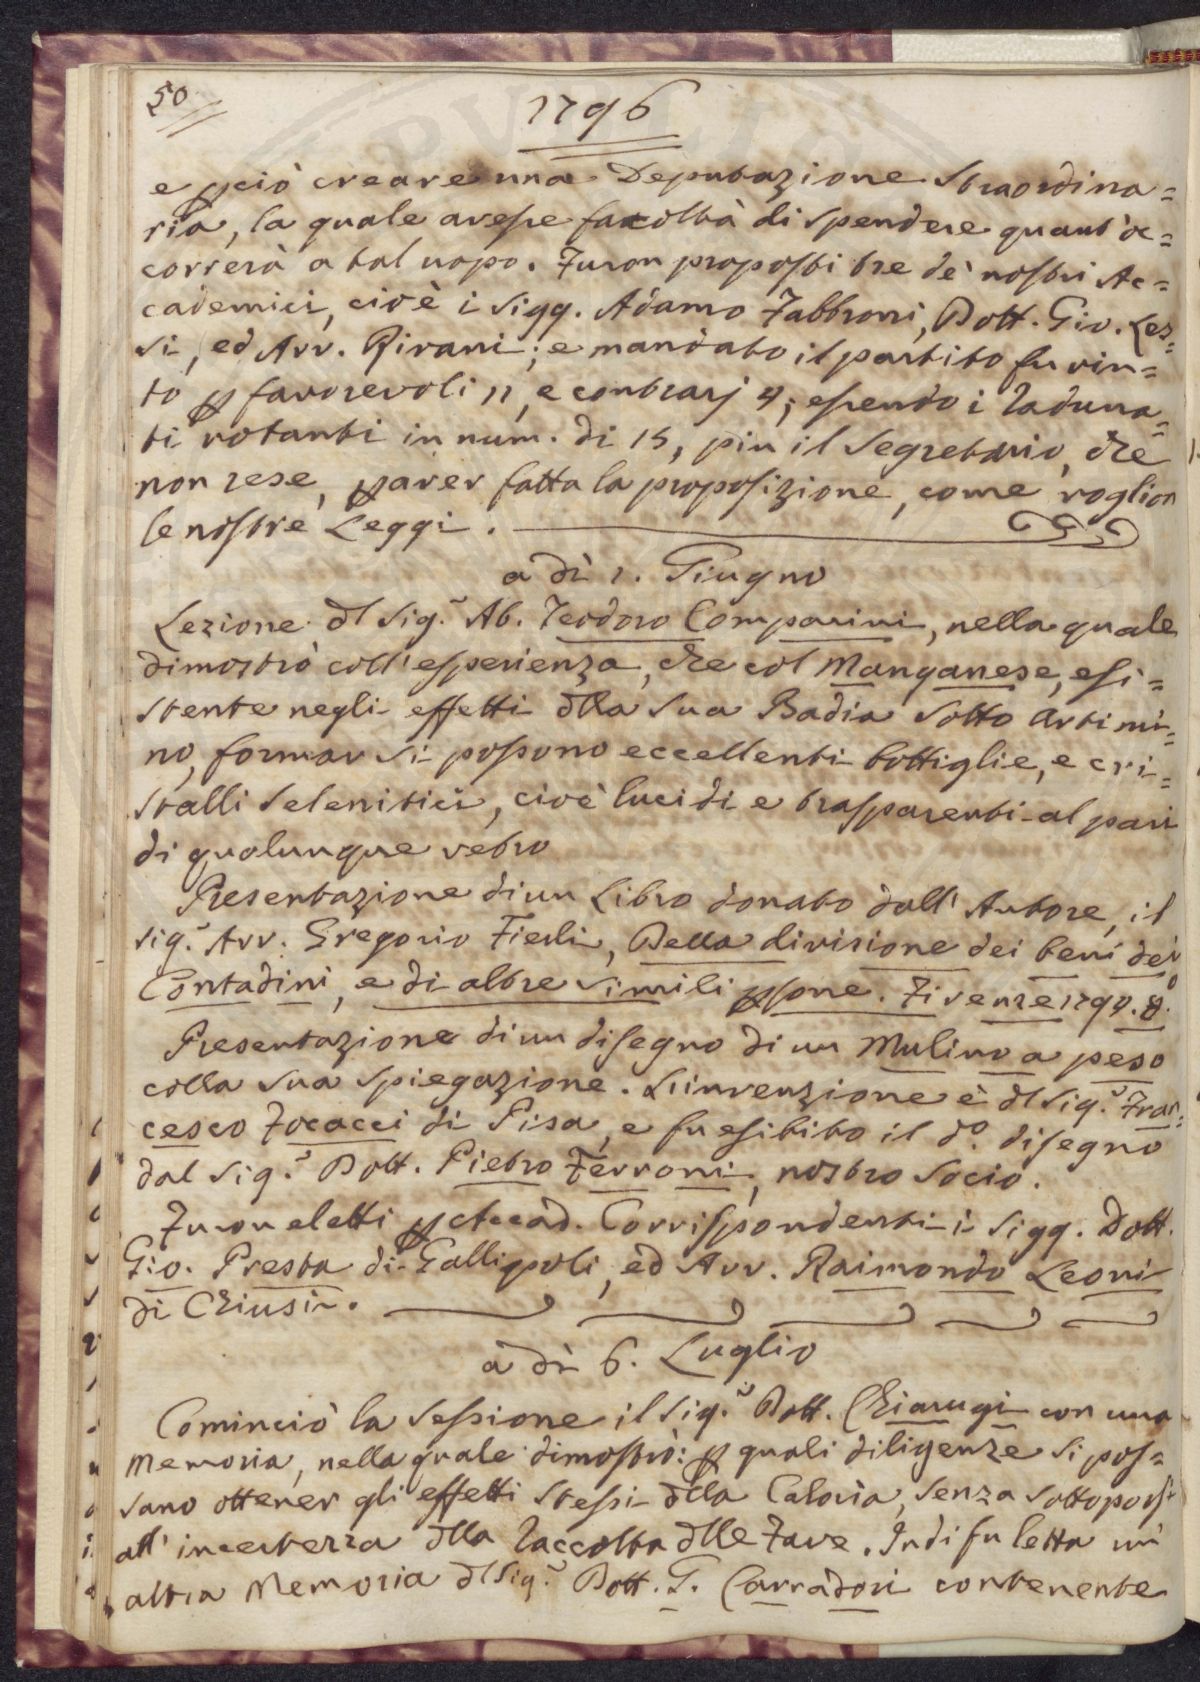 50
1796
e pciò creare una Deputazione Straordina=
ria, la quale avesse facoltà di spendere quant'oc=
correrà a tal uopo. Furon proposti tre de' nostri Ac=
cademici, cioè i Sigg. Adamo Fabbroni, Dott. Gio. Les=
si, ed Avv. Rivani; e mandato il partito fu vin=
to p favorevoli 11, e contrarj 4; essendo i Raduna=
ti votanti in num. di 15, piu il Segretario, che
non rese, p aver fatta la proposizione, come voglion
le nostre Leggi.
a dì 1. Giugno
Lezione dl Sig.r Ab. Teodoro Comparini, nella quale
dimostrò coll'esperienza, che col Manganese, esi=
stente negli effetti dlla Sua Badia Sotto Artimi=
no, formar si possono eccellenti bottiglie, e cri=
stalli Selenitici, cioè lucidi e trasparenti al pari
di qualunque vetro
Presentazione di un Libro donato dall'Autore, il
Sig.r Avv. Gregorio Fierli, Della divisione dei beni dei
Contadini, e di altre simili psone. Firenze 1797. 8.º
Presentazione di un disegno di un Mulino a peso
colla sua spiegazione. L'invenzione è dl Sig.r Fran=
cesco Focacci di Pisa, e fu esibito il do. disegno
dal Sig.r Dott. Pietro Ferroni, nostro Socio.
Furon eletti p Accad. Corrispondenti i Sigg. Dott.
Gio. Presta di Gallipoli, ed Avv. Raimondo Leoni
di Chiusi.
a dì 6. Luglio
Cominciò la Sessione il Sig.r Dott. Chiarugi con una
Memoria, nella quale dimostrò: p quali diligenze si pos=
sano ottener gli effetti stessi dlla Caloria, senza sottoporsi
all'incertezza dlla Raccolta dlle Fave. Indi fu letta un'
altra Memoria dl Sig.r Dott. G. Carradori contenente